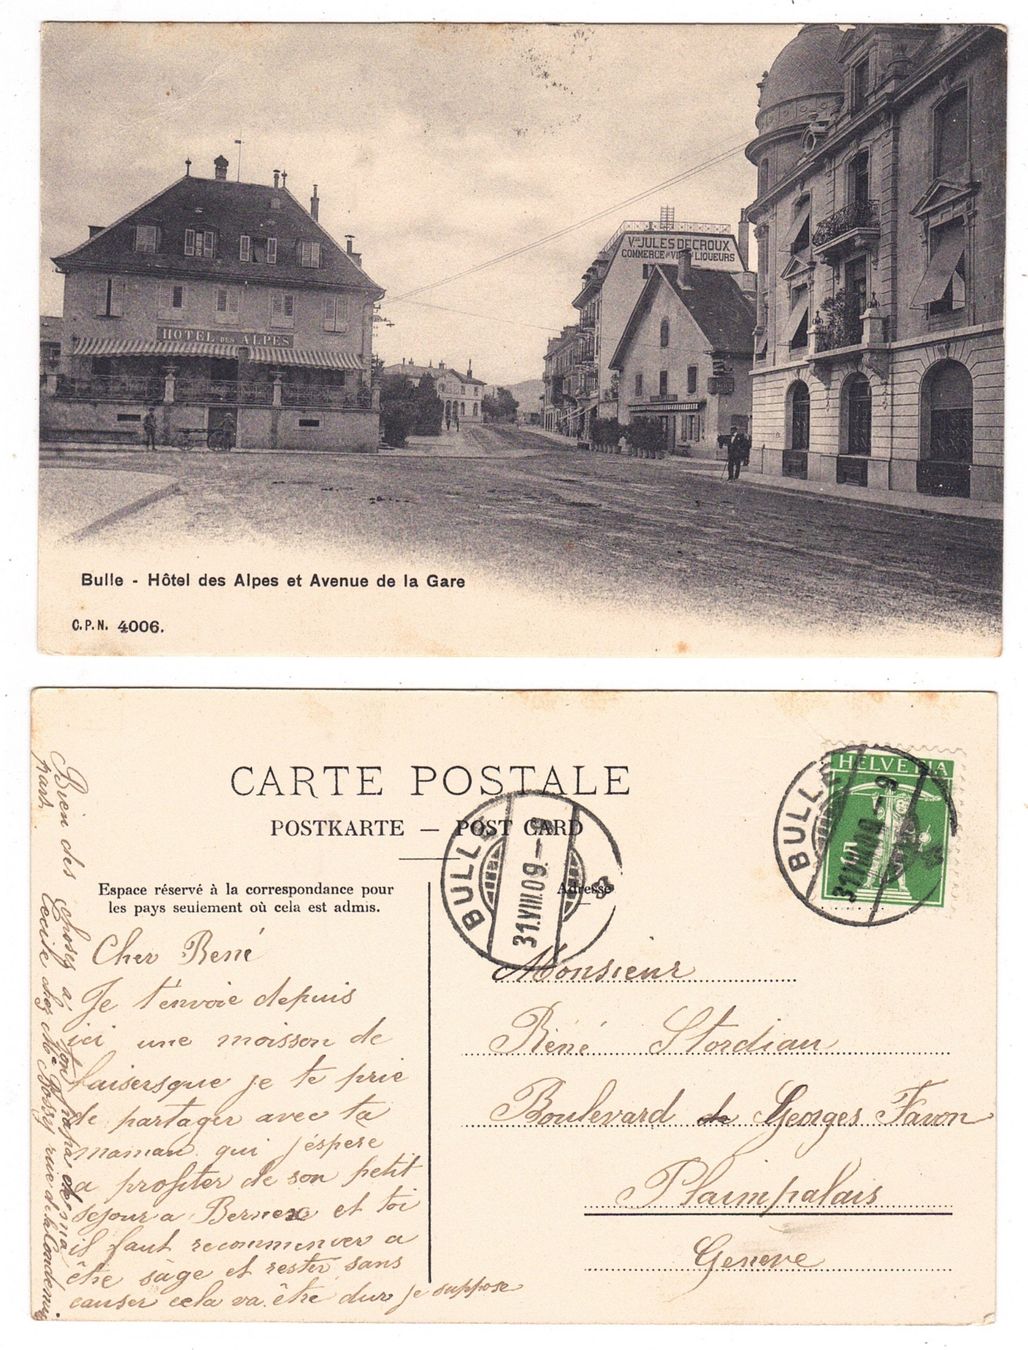 HOTEL DES ALPES
Vve JULES DECROUX
COMMERCE DE VINS LIQUEURS
Bulle - Hôtel des Alpes et Avenue de la Gare
C.P.N. 4006.
CARTE POSTALE
POSTKARTE — POST CARD
HELVETIA
5
BULLE
31.VIII.09.–9
BULLE
31.VIII.09.–9
Espace réservé à la correspondance pour
les pays seulement où cela est admis.
Adresse
Cher René
Je t'envoie depuis
ici une moisson de
baisers que je te prie
de partager avec ta
maman qui j'éspère
a profiter de son petit
sejour a Bernex et toi
il faut recommencer a
être sâge et rester sans
causer cela va être dur je suppose
Bien des choses à ton papa de ma
part. Cécile chez Me Bossy rue de la Condémine
Monsieur
Réné Stordiau
Boulevard de Georges Favon
Plaimpalais
Genève